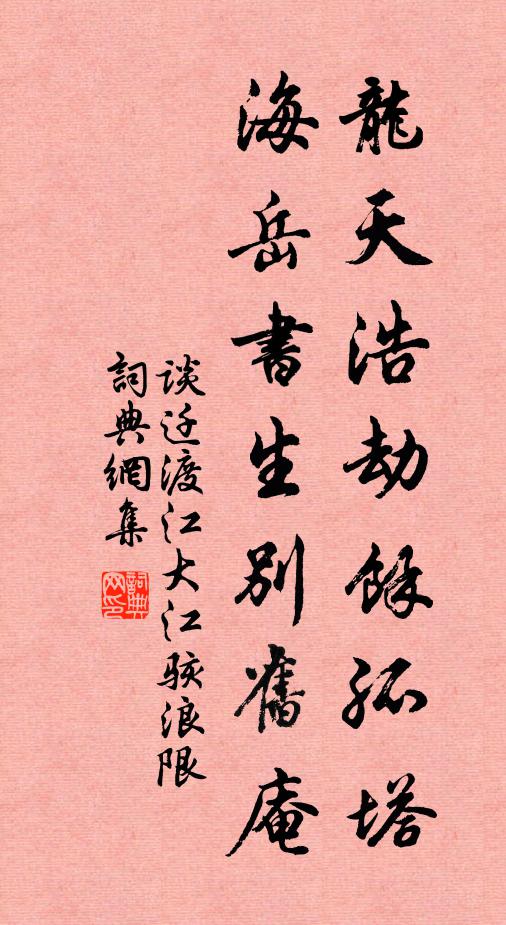 龍天浩劫餘孤塔
海岳書生別舊庵
谈迁渡江大江骇浪限
詞典網集
詞典网印